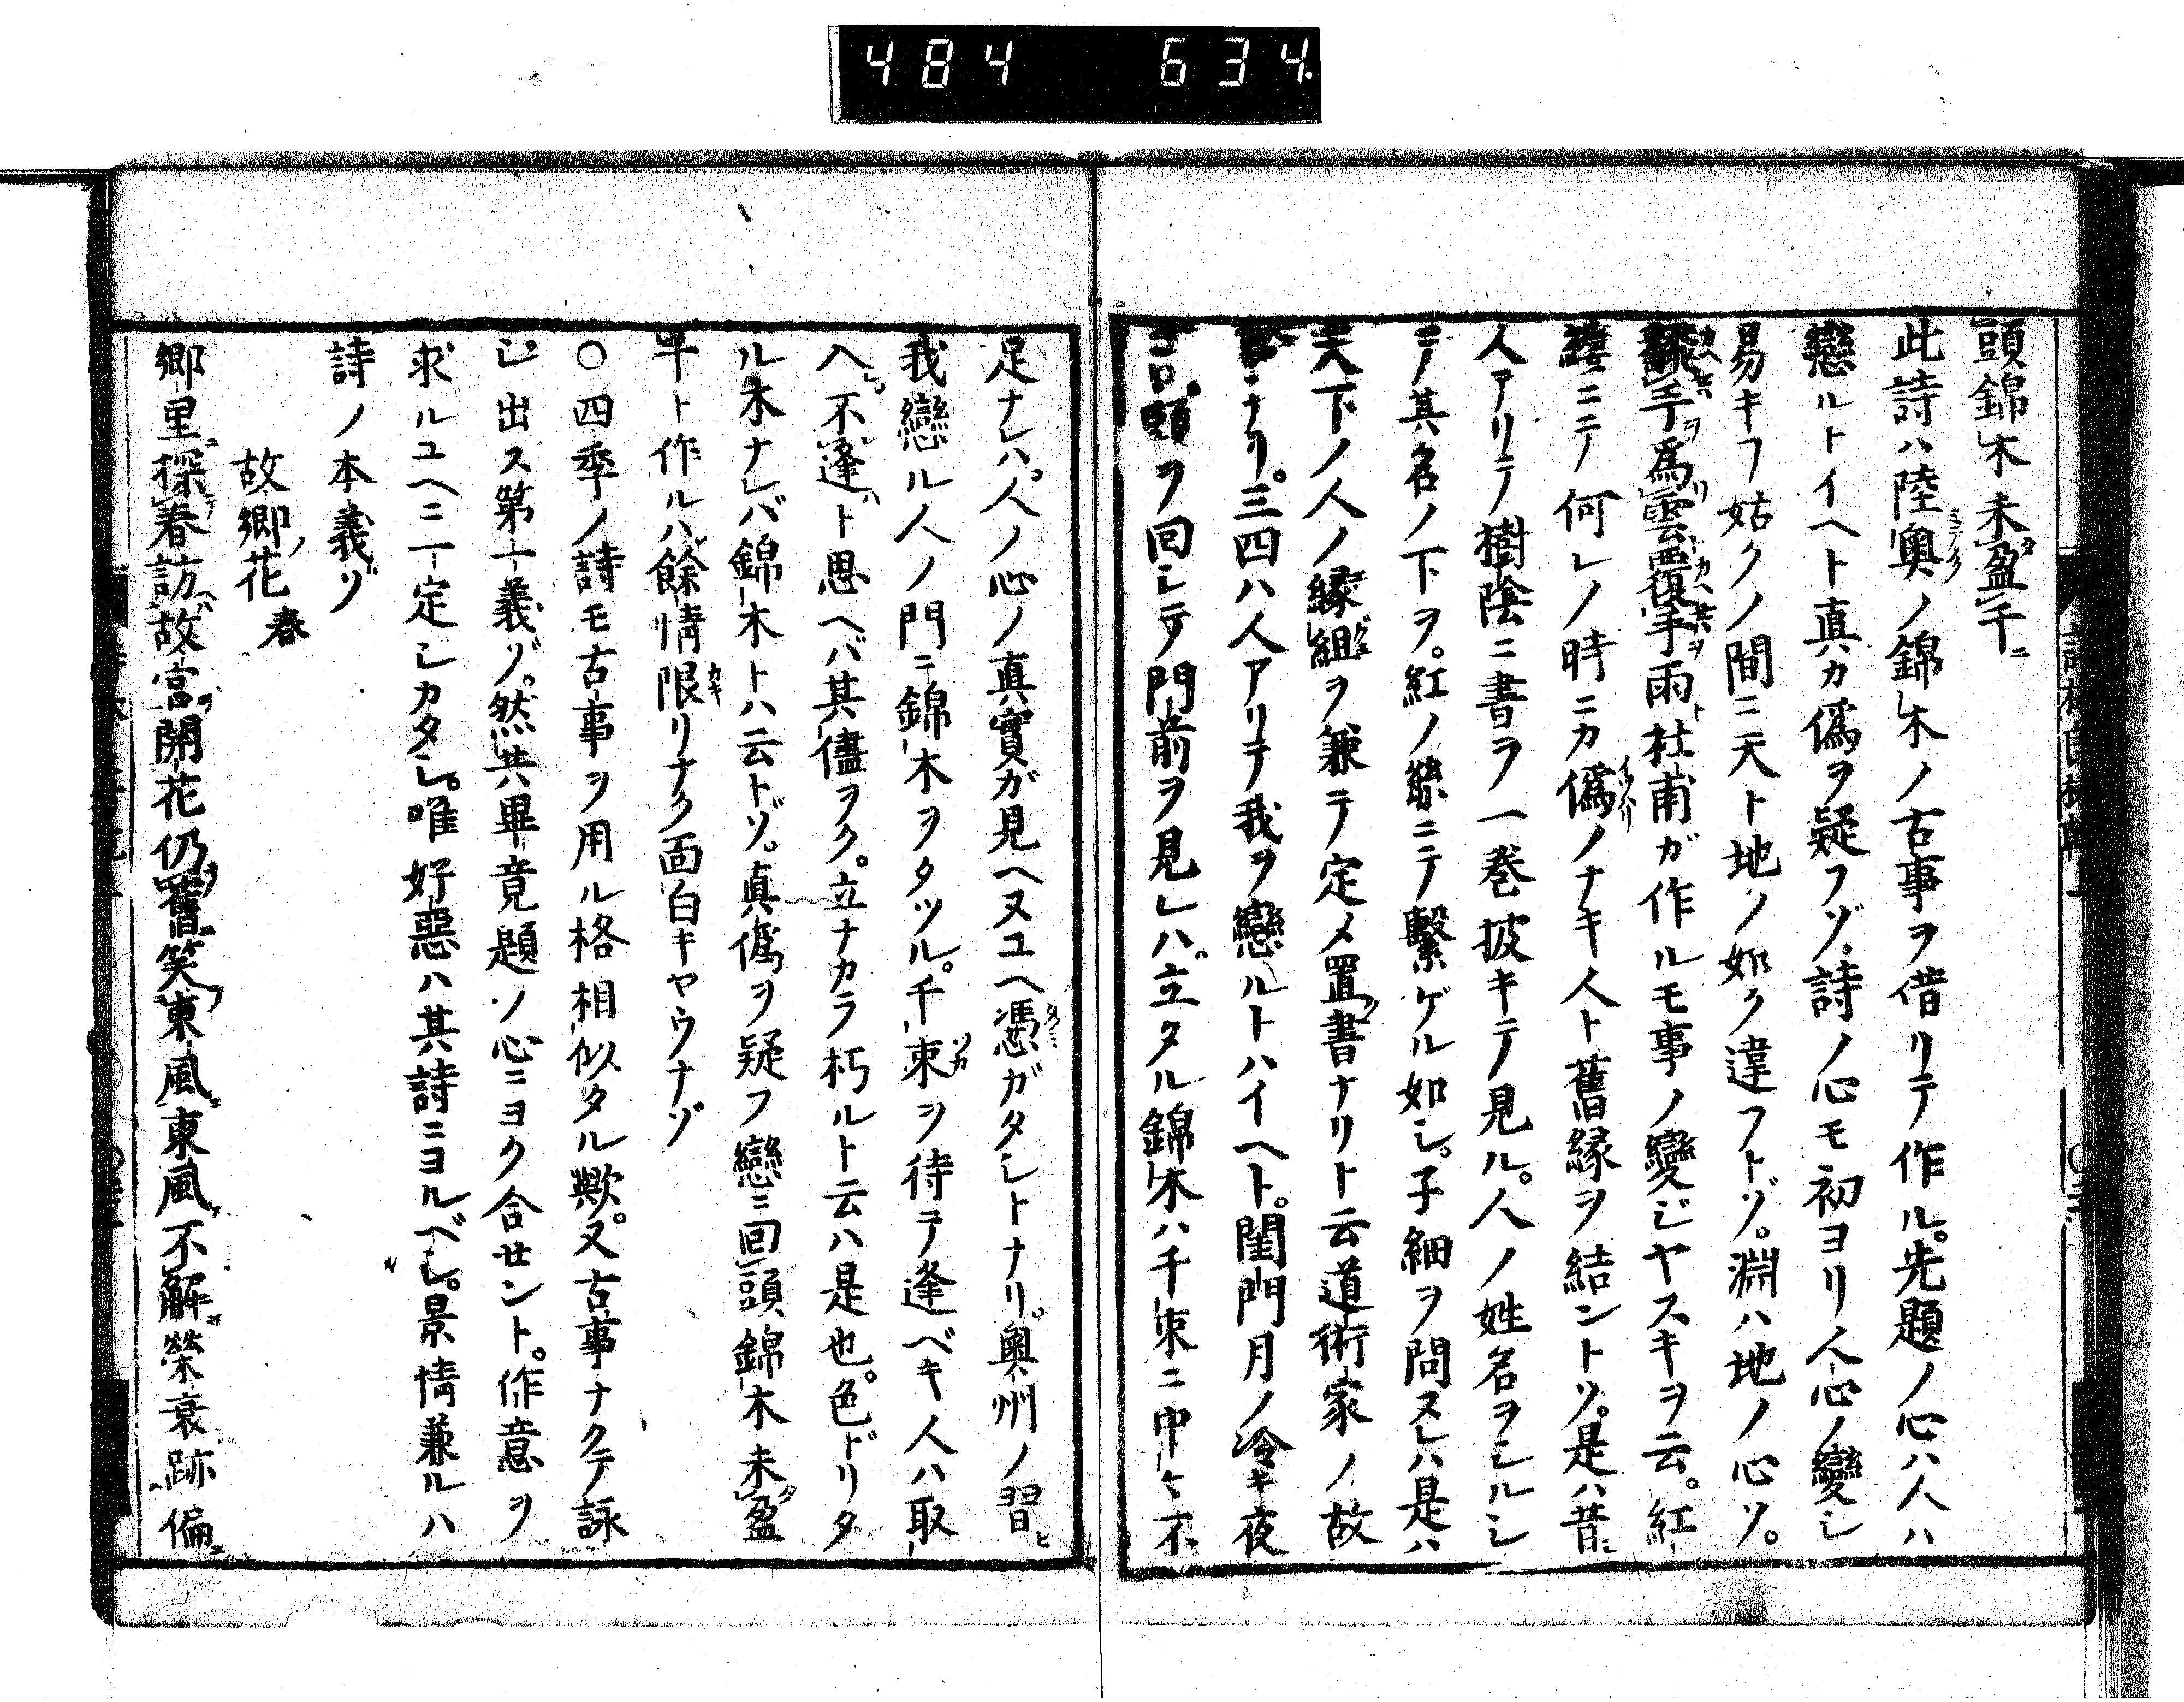 484 634
頭錦木未盈千
此詩ハ陸奥ノ錦木ノ古事ヲ借リテ作ル。先題ノ心ハ人ハ
戀ルトイヘト真カ偽ヲ疑フゾ。詩ノ心モ初ヨリ人心ノ變シ
易キフ姑クノ間ニ天ト地ノ如ク違フトゾ。淵ハ地ノ心ソ。
手為雲覆手雨杜甫ガ作ルモ事ノ變ジヤスキヲ云。紅
ニテ何レノ時ニカ偽ノナキ人ト舊縁ヲ結ントソ。是ハ昔
人アリテ樹陰ニ書ヲ一巻披キテ見ル。人ノ姓名ヲシルシ
テ其名ノ下ヲ。紅ノ絲ニテ繋ゲル如シ。子細ヲ問ヌレハ是ハ
天下ノ人ノ縁組ヲ兼テ定メ置書ナリト云道術家ノ故
ナリ。三四ハ人アリテ我ヲ戀ルトハイヘト。閨門月ノ冷キ夜
頭ヲ回シテ門前ヲ見レハ。立タル錦木ハ千束ニ中々不
足ナレハ。人ノ心ノ真實ガ見ヘヌユヘ憑ガタシトナリ。奥州ノ習
我戀ル人ノ門ニ錦木ヲタツル。千束ヲ待テ逢ベキ人ハ取
入。不逢ト思ヘバ其儘ヲク。立ナカラ朽ルト云ハ是也。色ドリタ
ル木ナレバ錦木トハ云トゾ。真偽ヲ疑フ戀ニ回頭錦木未盈
千ト作ルハ餘情限リナク面白キヤウナゾ
○四季ノ詩モ古事ヲ用ル格相似タル歟。又古事ナクテ詠
ジ出ス第一義ゾ。然共畢竟題ノ心ニヨク合セント。作意ヲ
求ルユヘニ一定シカタシ。唯好惡ハ其詩ニヨルベシ。景情兼ルハ
詩ノ本義ゾ
故郷花 春
郷里探春訪故宮開花仍舊笑東風東風不解榮衰跡偏